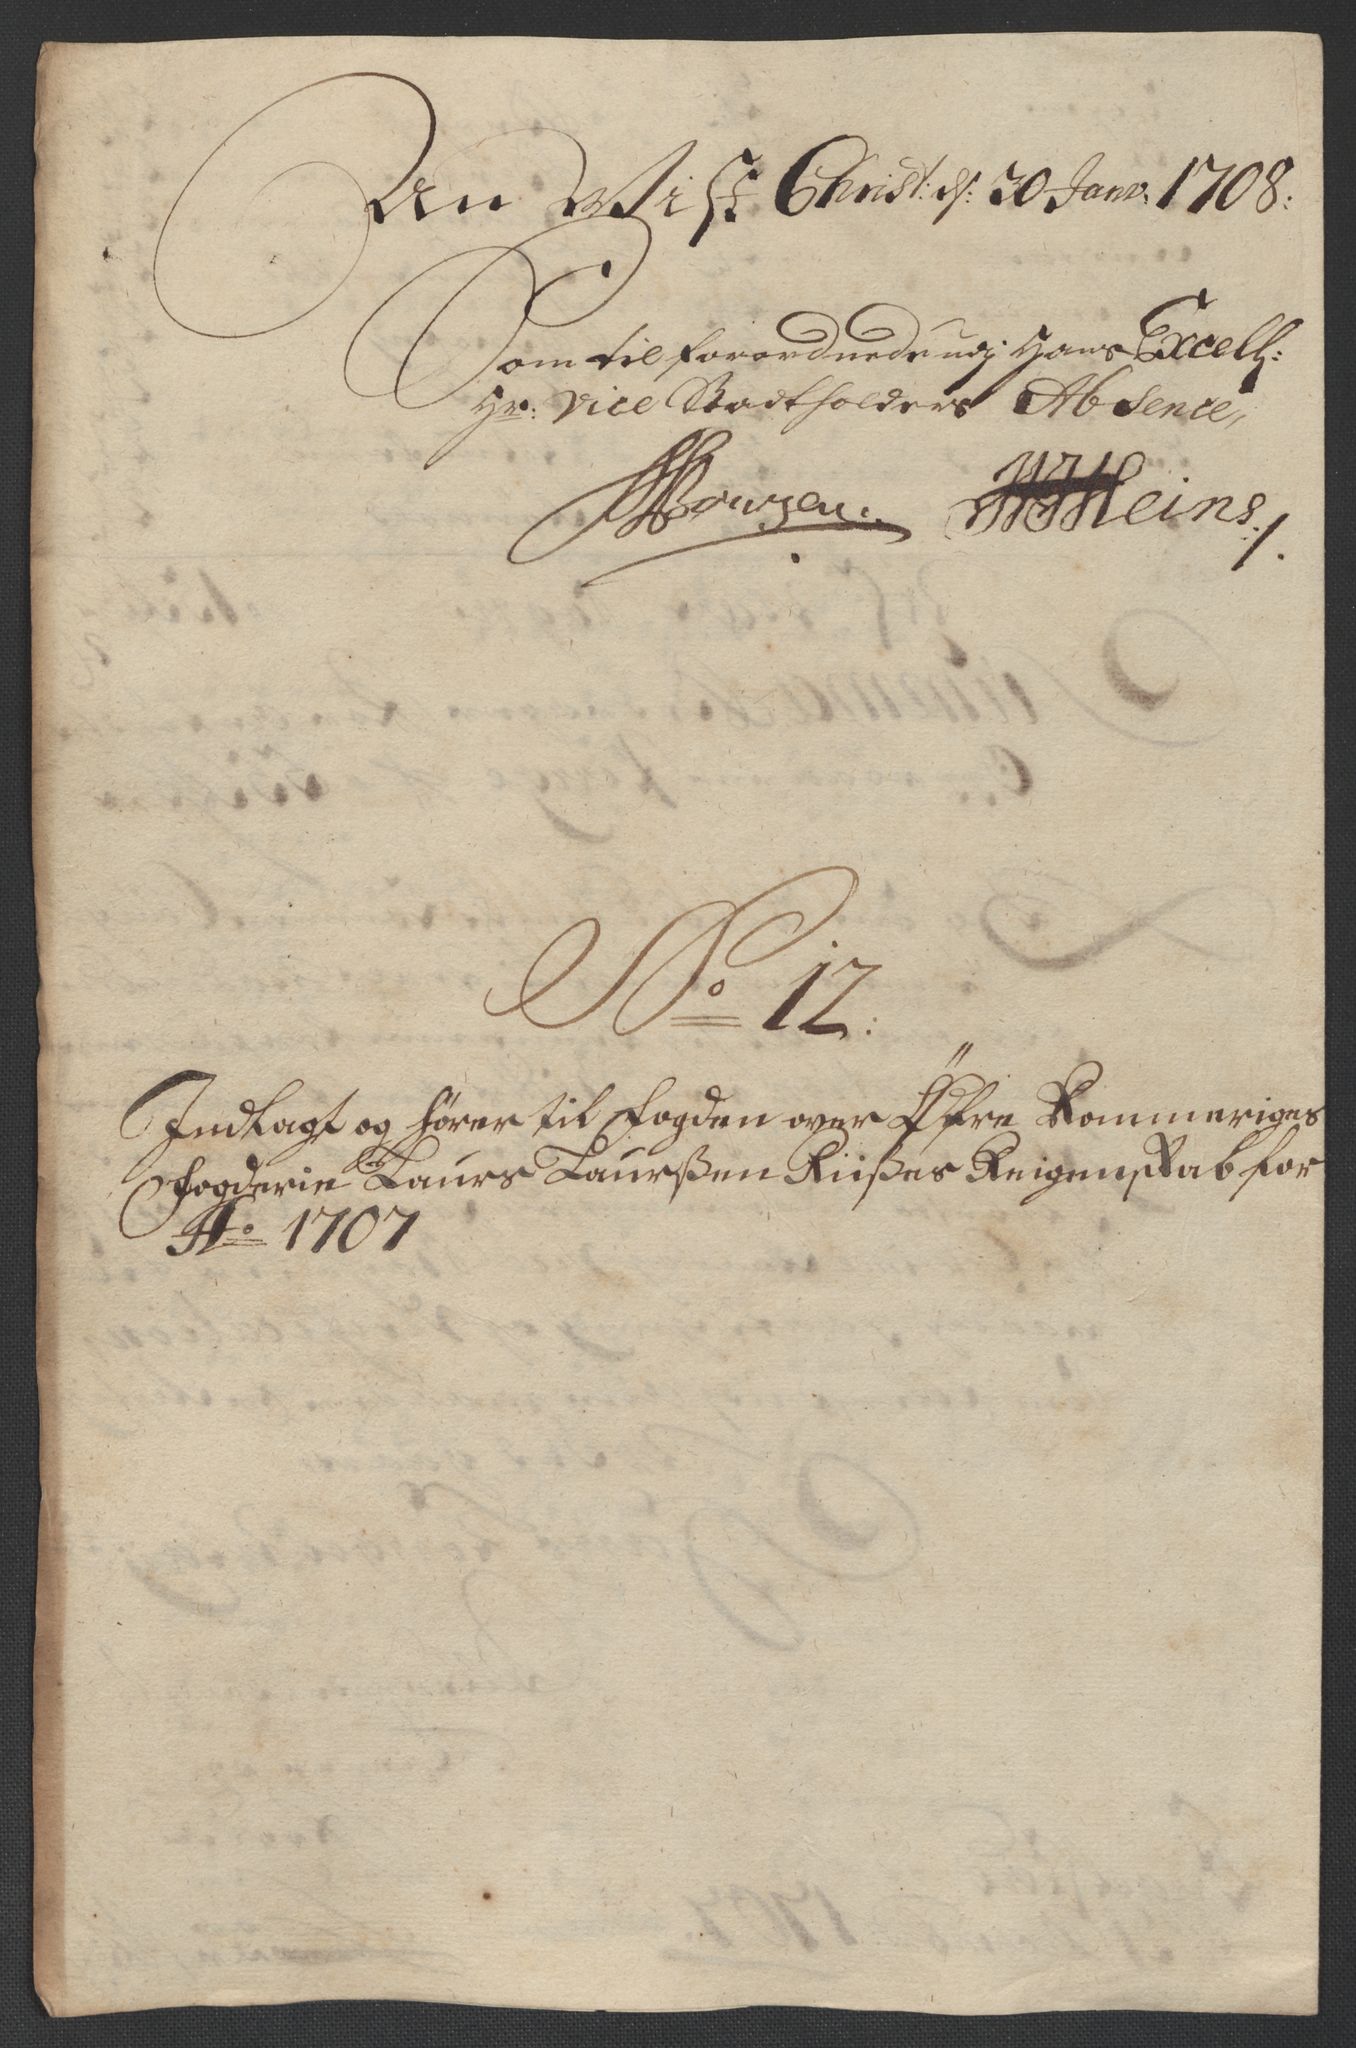 An Vist Christ: d: 30 Janv. 1708:
Som til forordnede udj Hans Excell:
Hr: Vice Stadtholders Absence,
Heins ./.
No 12:
Indlagt og hører til fogden over Øfre Rommeriges
fogderie Laurs Laurssen Riises Reigenskab for
Ao 1707